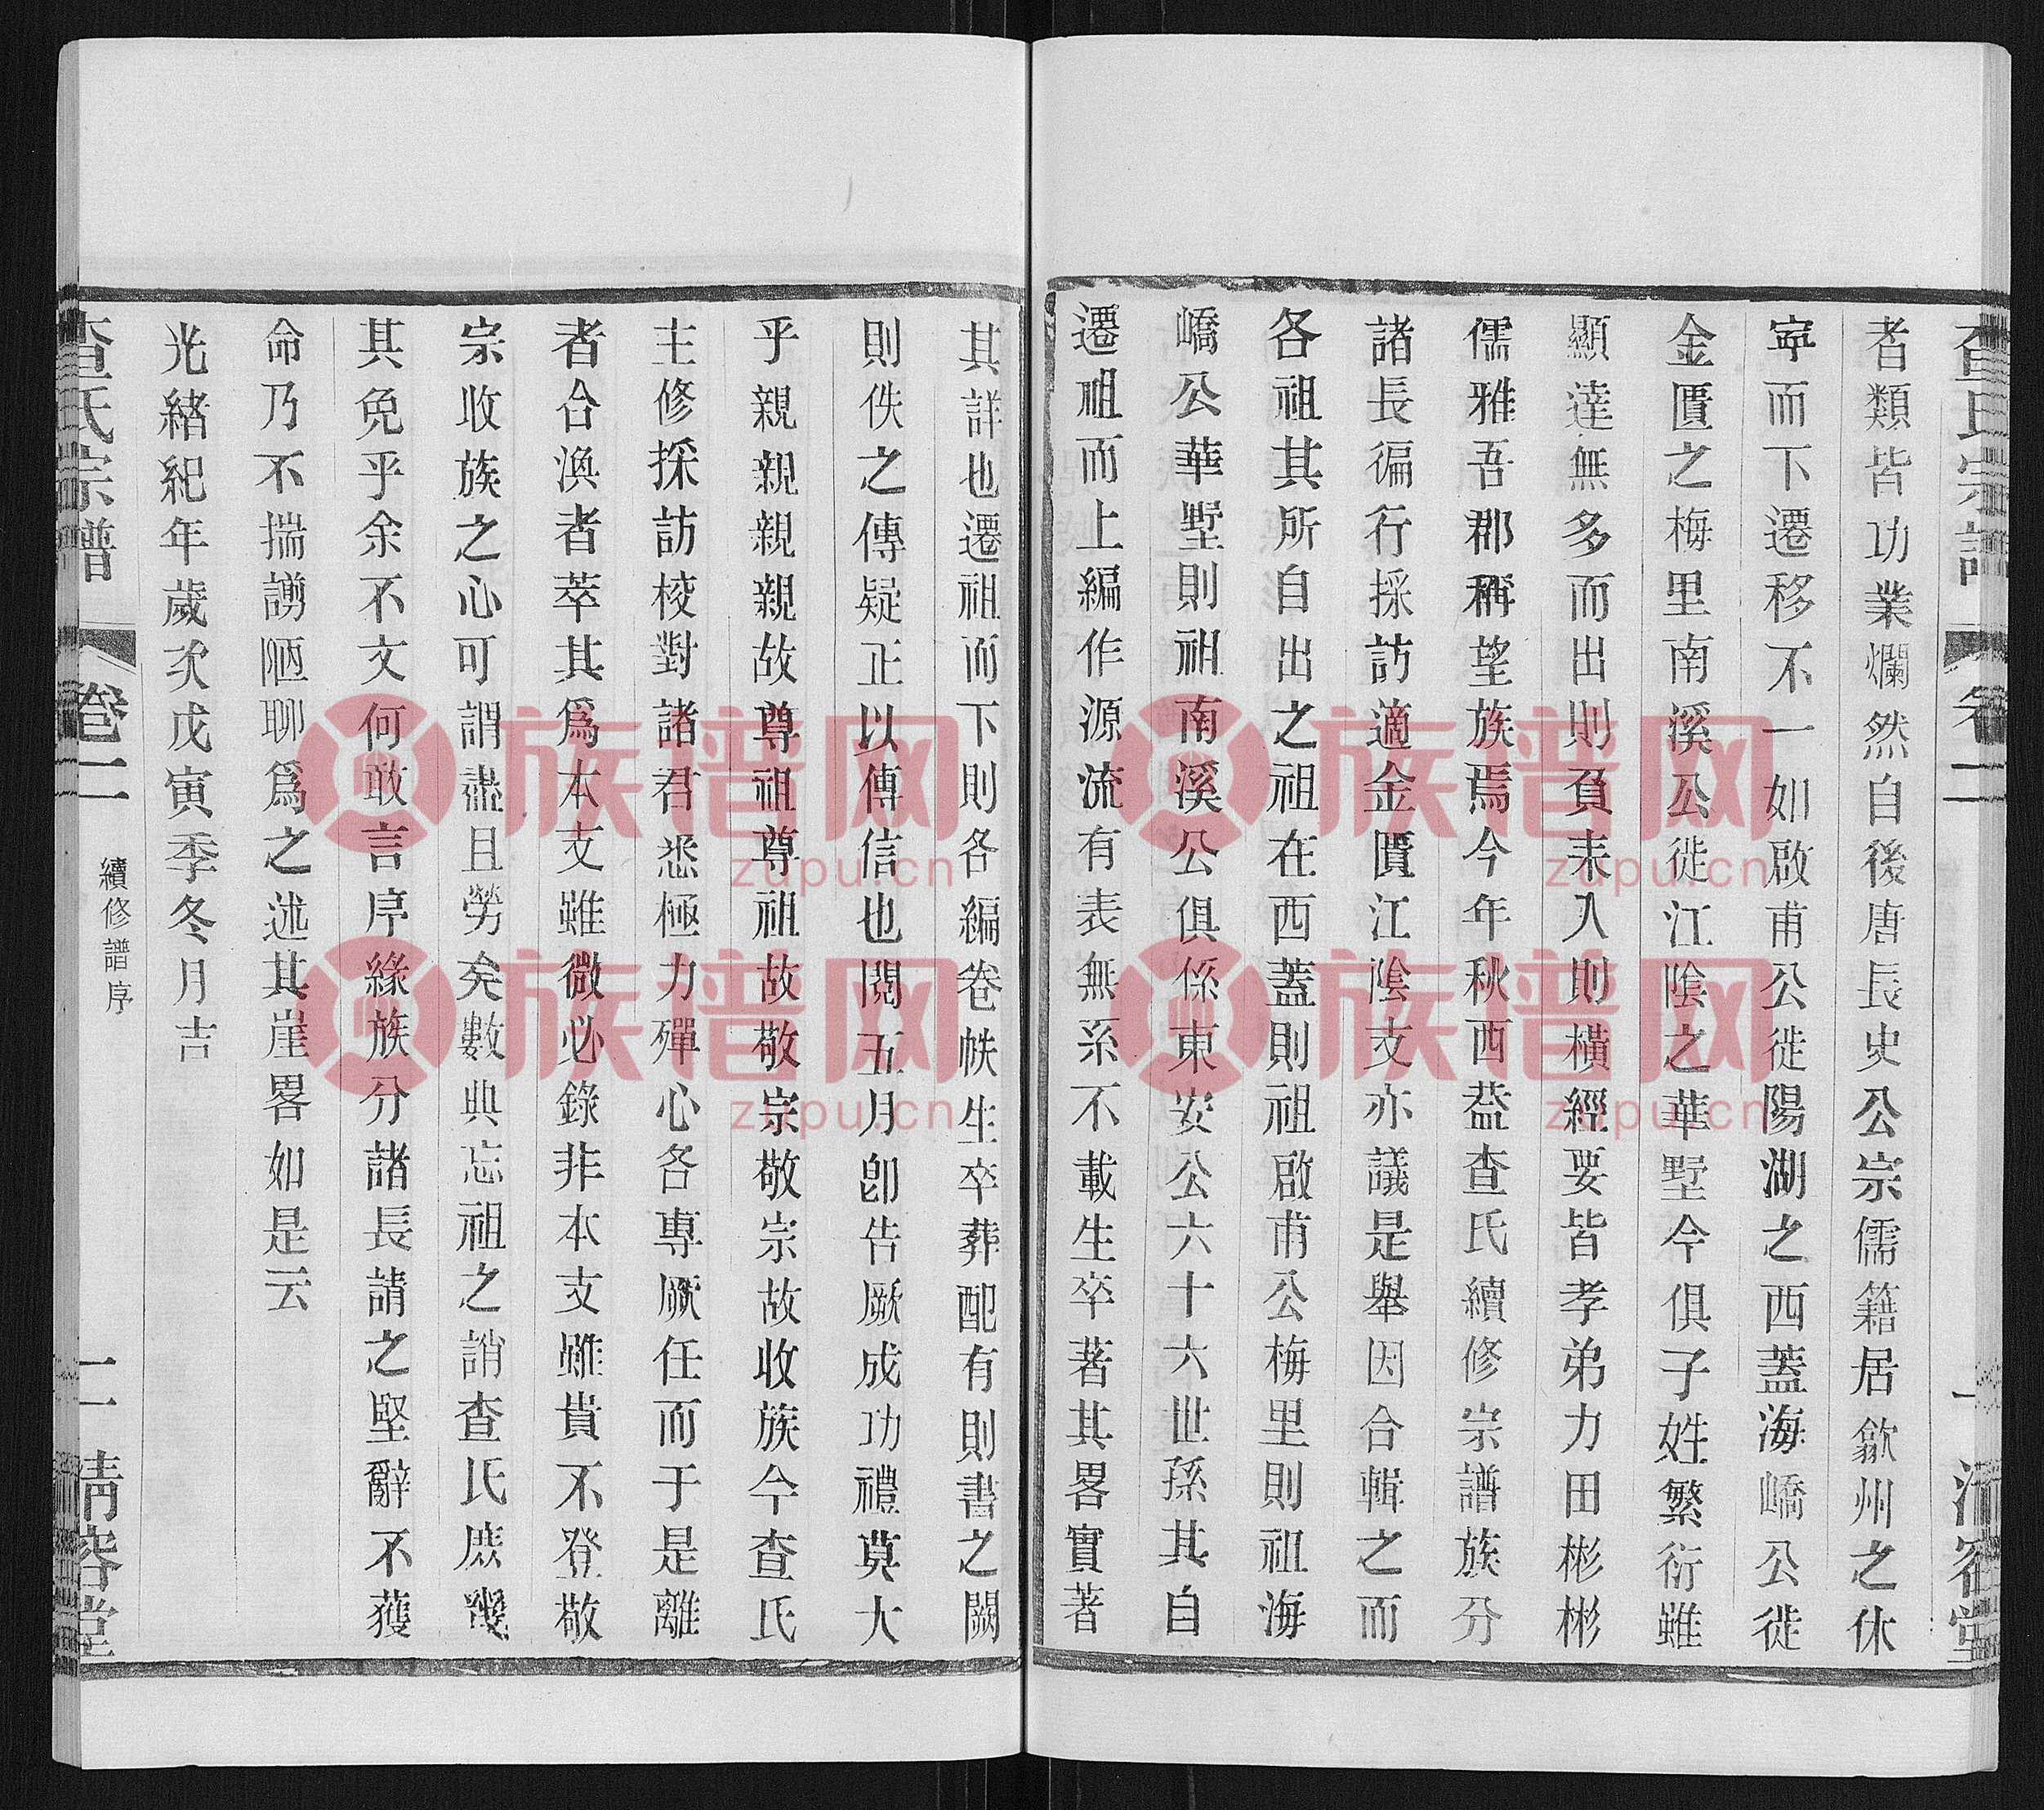 查氏宗譜 卷二 一 清容堂
者類皆功業爛然自後唐長史公宗儒籍居歙州之休
寧而下遷移不一如啟甫公徙陽湖之西蓋海嶠公徙
金匱之梅里南溪公徙江陰之華墅今俱子姓繁衍雖
顯達無多而出則負耒入則橫經要皆孝弟力田彬彬
儒雅吾郡稱望族焉今年秋西葢查氏續修宗譜族分
諸長徧行採訪適金匱江陰支亦議是舉因合輯之而
各祖其所自出之祖在西蓋則祖啟甫公梅里則祖海
嶠公華墅則祖南溪公俱係東安公六十六世孫其自
遷祖而上編作源流有表無系不載生卒著其畧實著
其詳也遷祖而下則各編卷帙生卒葬配有則書之闕
則佚之傳疑正以傳信也閱五月卽告厥成功禮莫大
乎親親親親故尊祖尊祖故敬宗敬宗故收族今查氏
主修採訪校對諸君悉極力殫心各專厥任而于是離
者合渙者萃其爲本支雖微必錄非本支雖貴不登敬
宗收族之心可謂盡且勞矣數典忘祖之誚查氏庶幾
其免乎余不文何敢言序緣族分諸長請之堅辭不獲
命乃不揣譾陋聊爲之述其崖畧如是云
光緒紀年歲次戊寅季冬月吉
查氏宗譜 卷二 續修譜序 二 清容堂
族譜网
zupu.cn
族譜网
zupu.cn
族譜网
zupu.cn
族譜网
zupu.cn